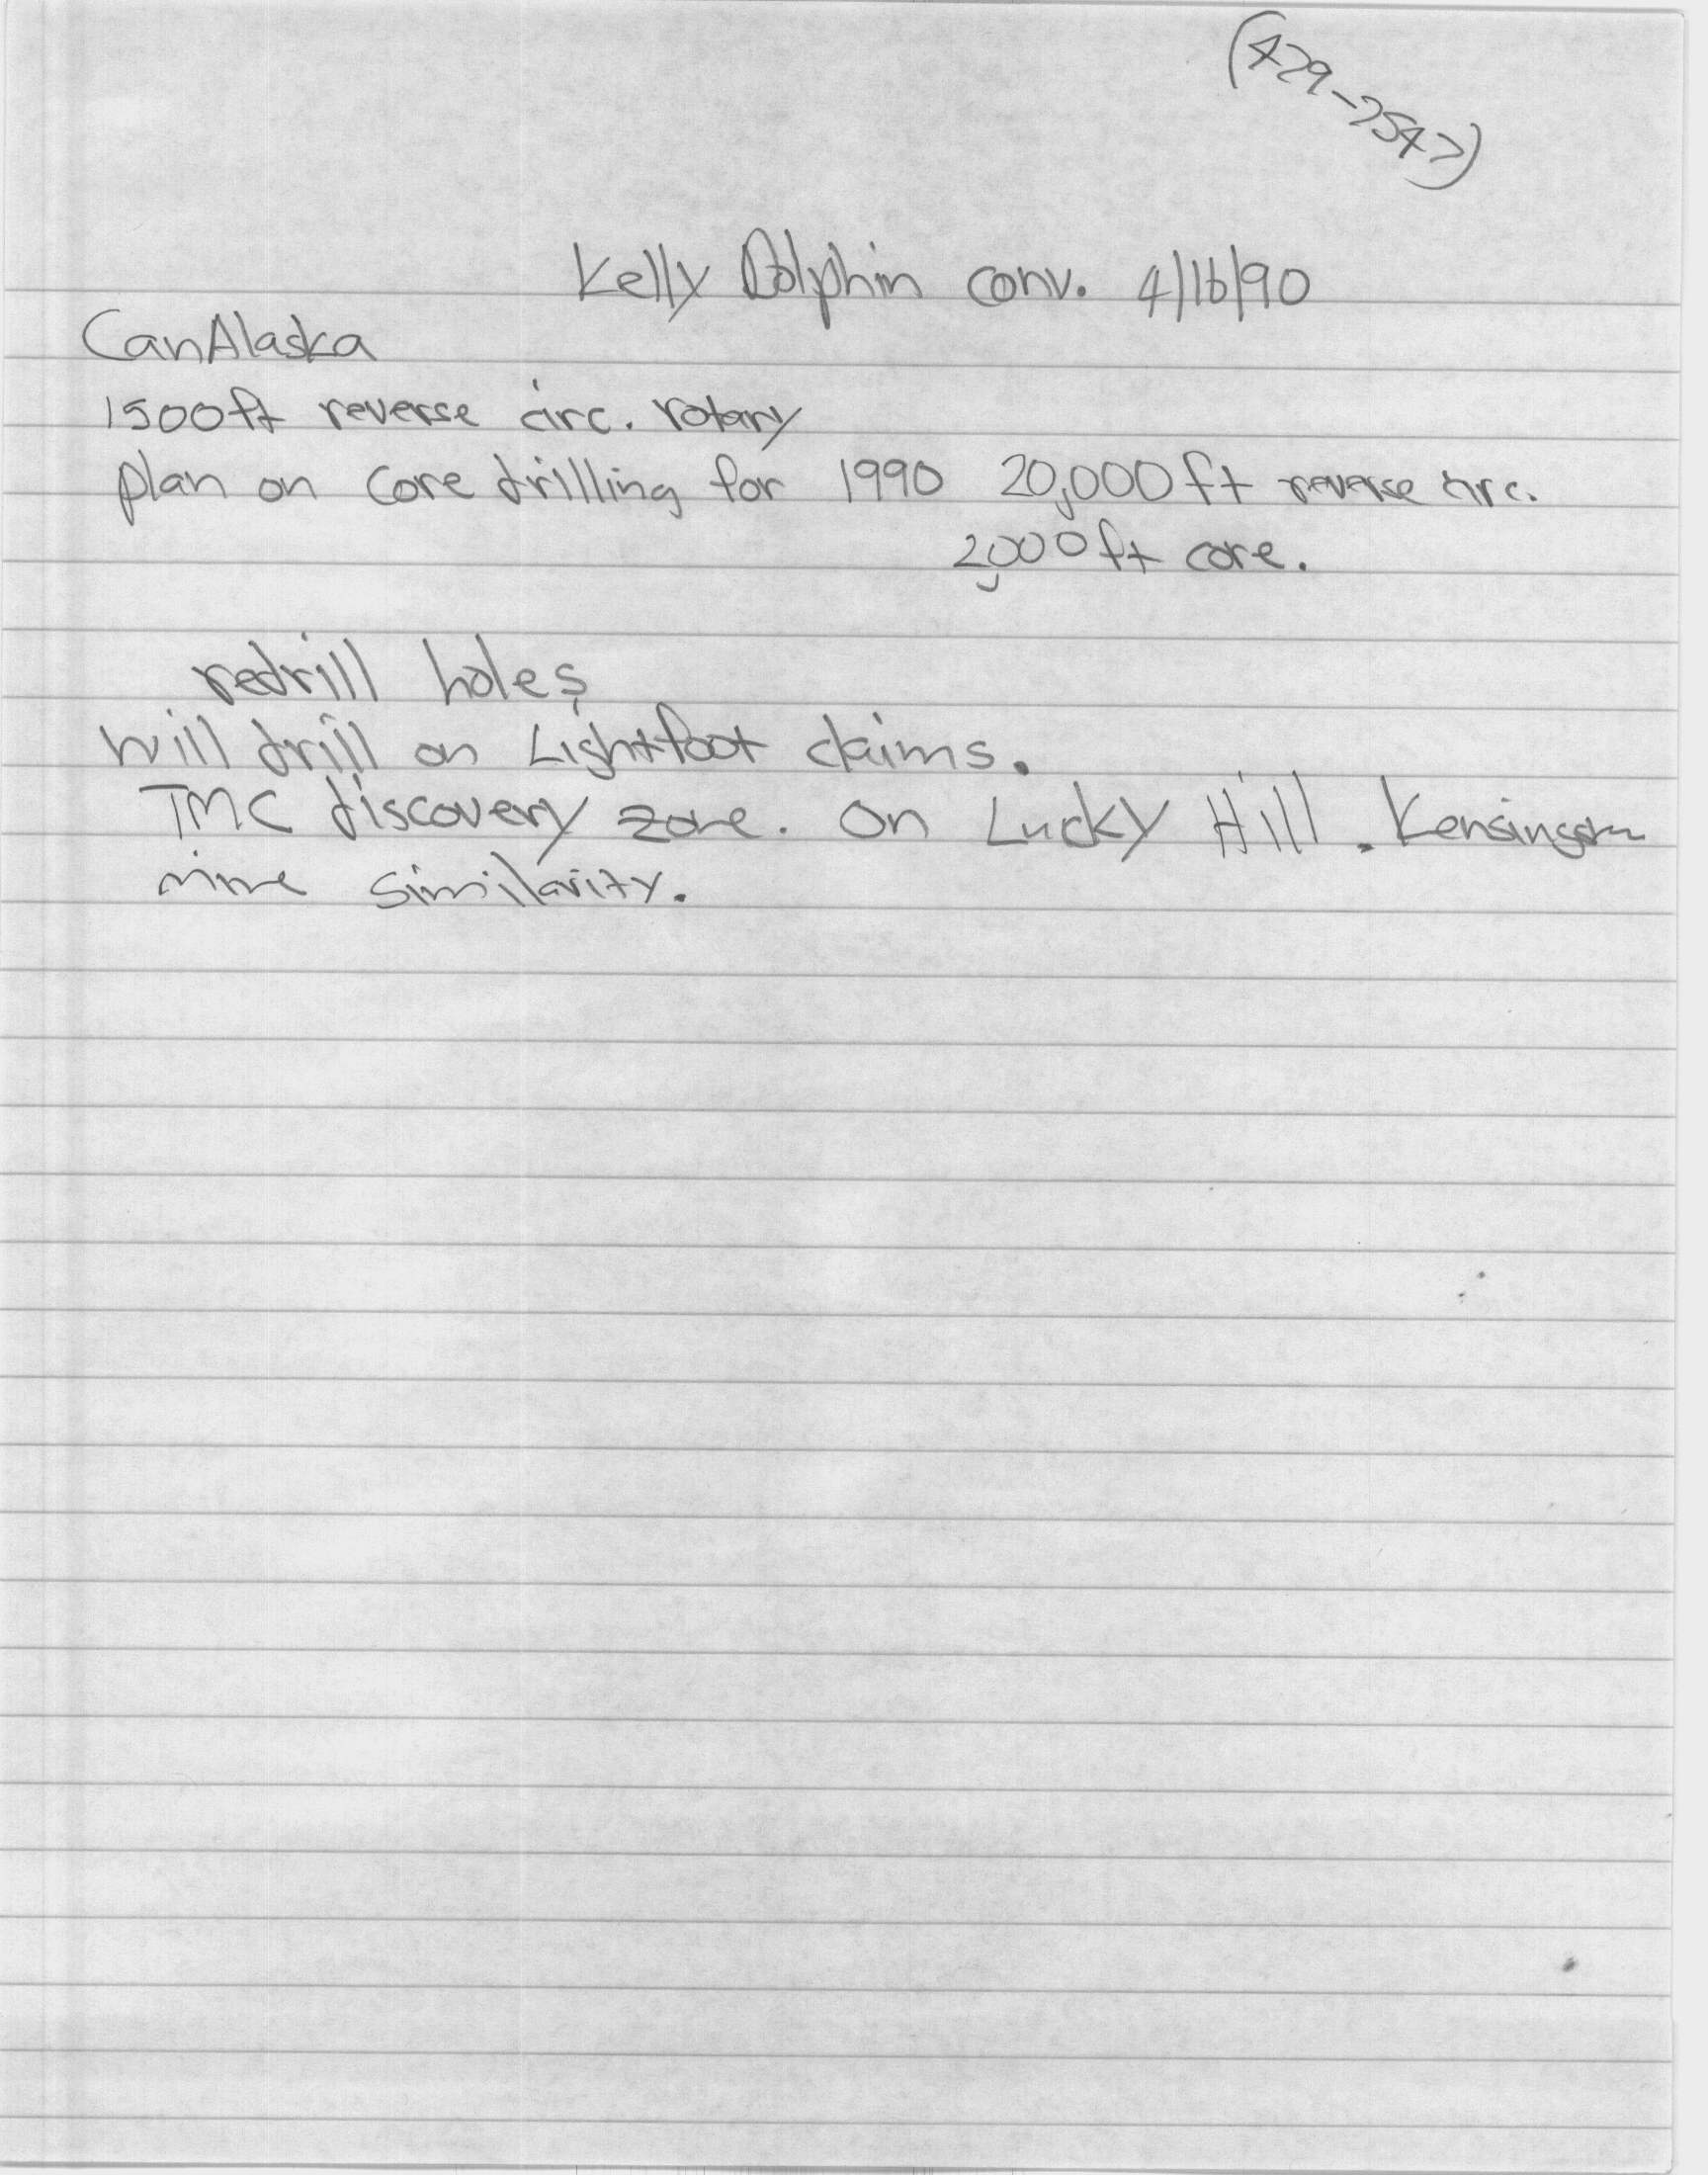 (479-2547)
Kelly Dolphin conv. 4/16/90
CanAlaska
1500ft reverse circ. rotary
plan on core drilling for 1990 20,000 ft reverse circ.
2,000 ft core.
redrill holes
will drill on Lightfoot claims.
TMC discovery zone. on Lucky Hill. Kensington
mine similarity.